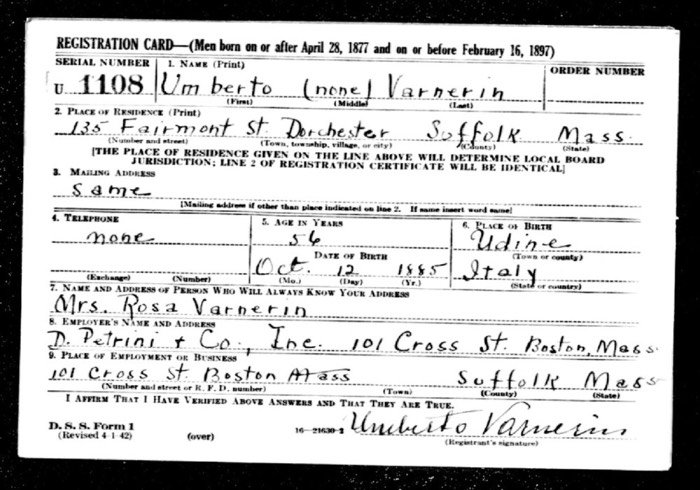 REGISTRATION CARD—(Men born on or after April 28, 1877 and on or before February 16, 1897)
SERIAL NUMBER 1. NAME (Print) ORDER NUMBER
U 1108 Umberto (none) Varnerin
(First) (Middle) (Last)
2. PLACE OF RESIDENCE (Print)
135 Fairmont St. Dorchester Suffolk Mass.
(Number and street) (Town, township, village, or city) (County) (State)
[THE PLACE OF RESIDENCE GIVEN ON THE LINE ABOVE WILL DETERMINE LOCAL BOARD
JURISDICTION; LINE 2 OF REGISTRATION CERTIFICATE WILL BE IDENTICAL]
3. MAILING ADDRESS
Same
[Mailing address if other than place indicated on line 2. If same insert word same]
4. TELEPHONE 5. AGE IN YEARS 6. PLACE OF BIRTH
none 56 Udine
DATE OF BIRTH (Town or county)
Oct. 12 1885 Italy
(Exchange) (Number) (Mo.) (Day) (Yr.) (State or country)
7. NAME AND ADDRESS OF PERSON WHO WILL ALWAYS KNOW YOUR ADDRESS
Mrs. Rosa Varnerin
8. EMPLOYER'S NAME AND ADDRESS
D. Petrini + Co., Inc. 101 Cross St. Boston, Mass.
9. PLACE OF EMPLOYMENT OR BUSINESS
101 Cross St. Boston Mass Suffolk Mass
(Number and street or R. F. D. number) (Town) (County) (State)
I AFFIRM THAT I HAVE VERIFIED ABOVE ANSWERS AND THAT THEY ARE TRUE.
D. S. S. Form 1
(Revised 4-1-42) (over) 16—21630-2 Umberto Varnerin
(Registrant's signature)